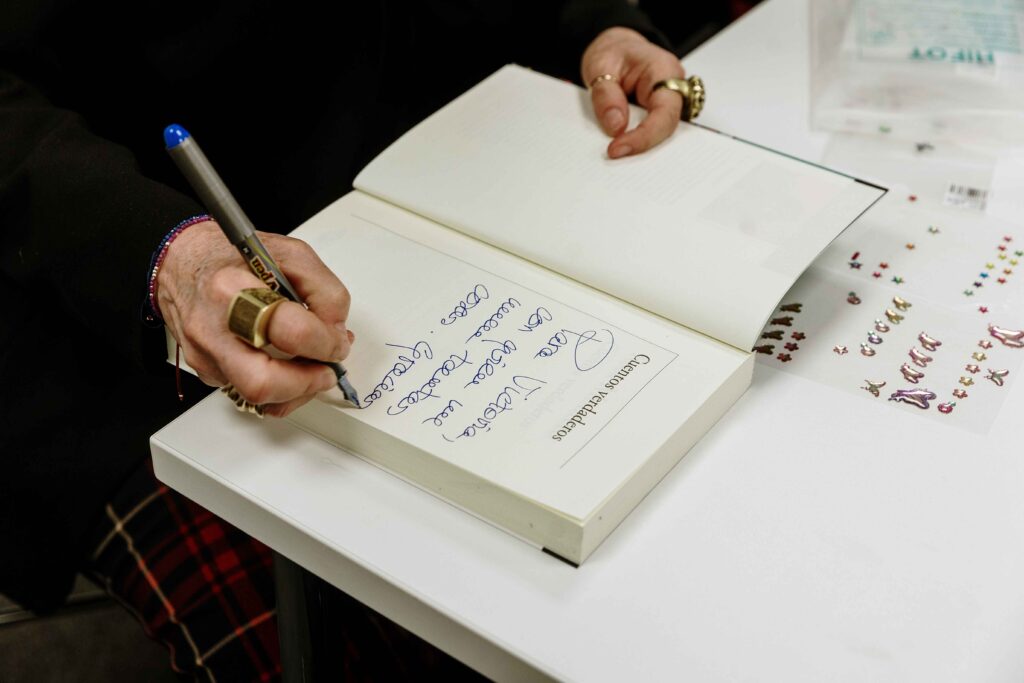 Cuentos verdaderos
Para Victoria,
con quien me
unen tantas
cosas. Gracias